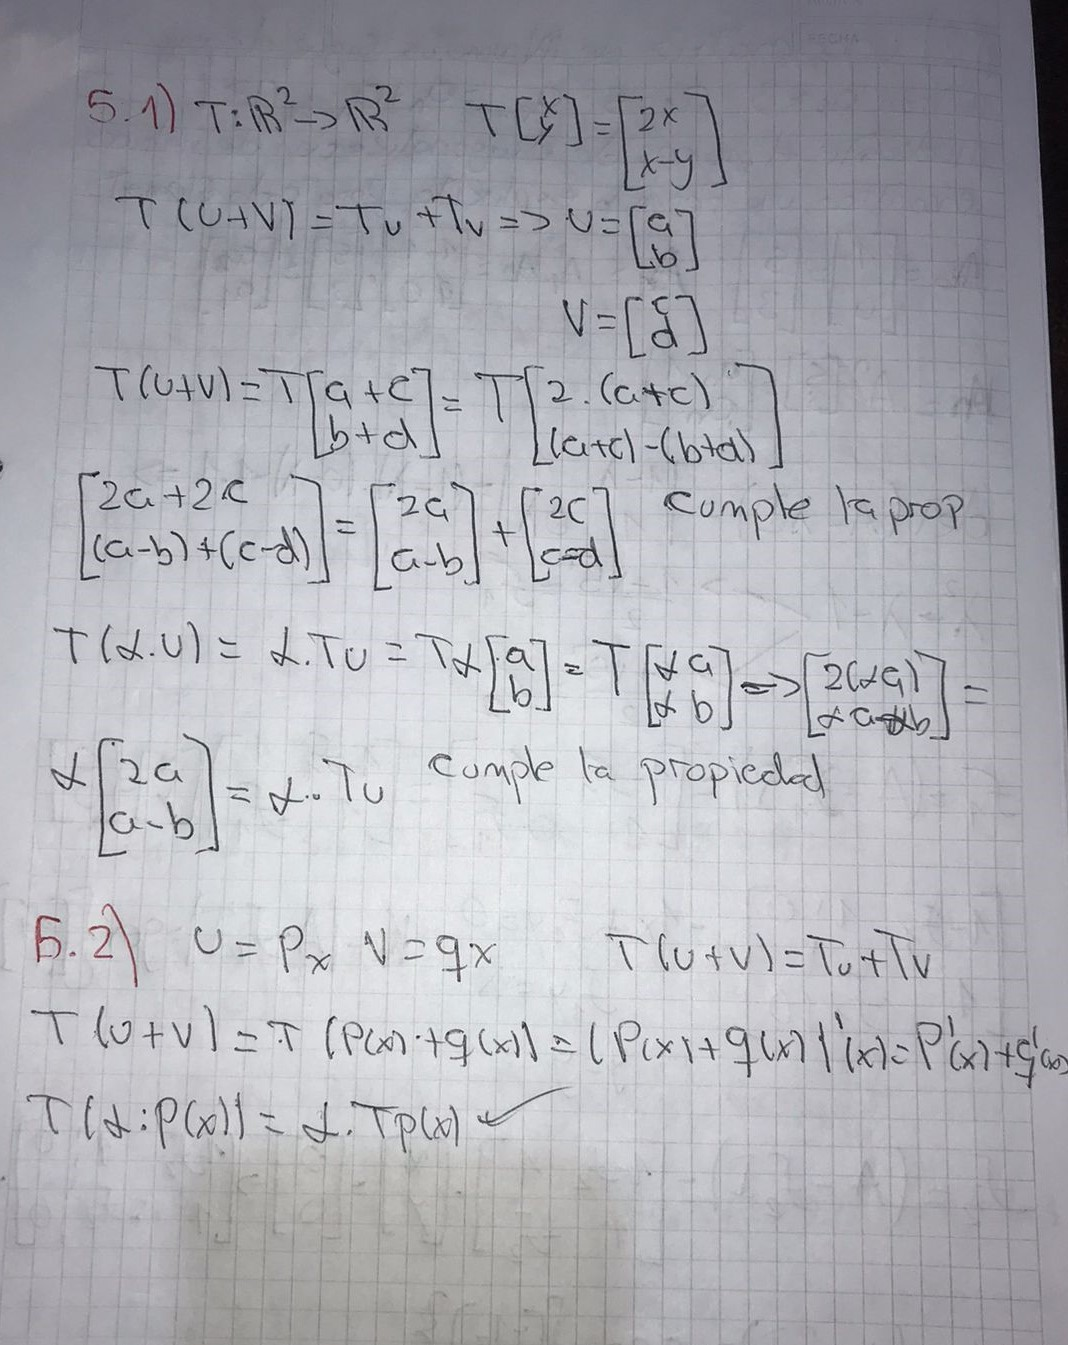 FECHA
5.1) T:ℝ²→ℝ² T[x y] = [2x x-y]
T(U+V) = Tu + Tv => U = [a b]
V = [c d]
T(U+V) = T[a+c b+d] = T[2.(a+c) (a+c)-(b+d)]
[2a+2c (a-b)+(c-d)] = [2a a-b] + [2c c-d] cumple la prop
T(α.U) = α.Tu = Tα[a b] = T[αa αb] => [2(αa) αa-αb] =
α[2a a-b] = α.Tu cumple la propiedad
5.2) U = Px V = qx T(U+V) = Tu+Tv
T(U+V) = T(P(x)+q(x)) = (P(x)+q(x))'(x) = P'(x)+q'(x)
T(α.P(x)) = α.Tp(x) ✓